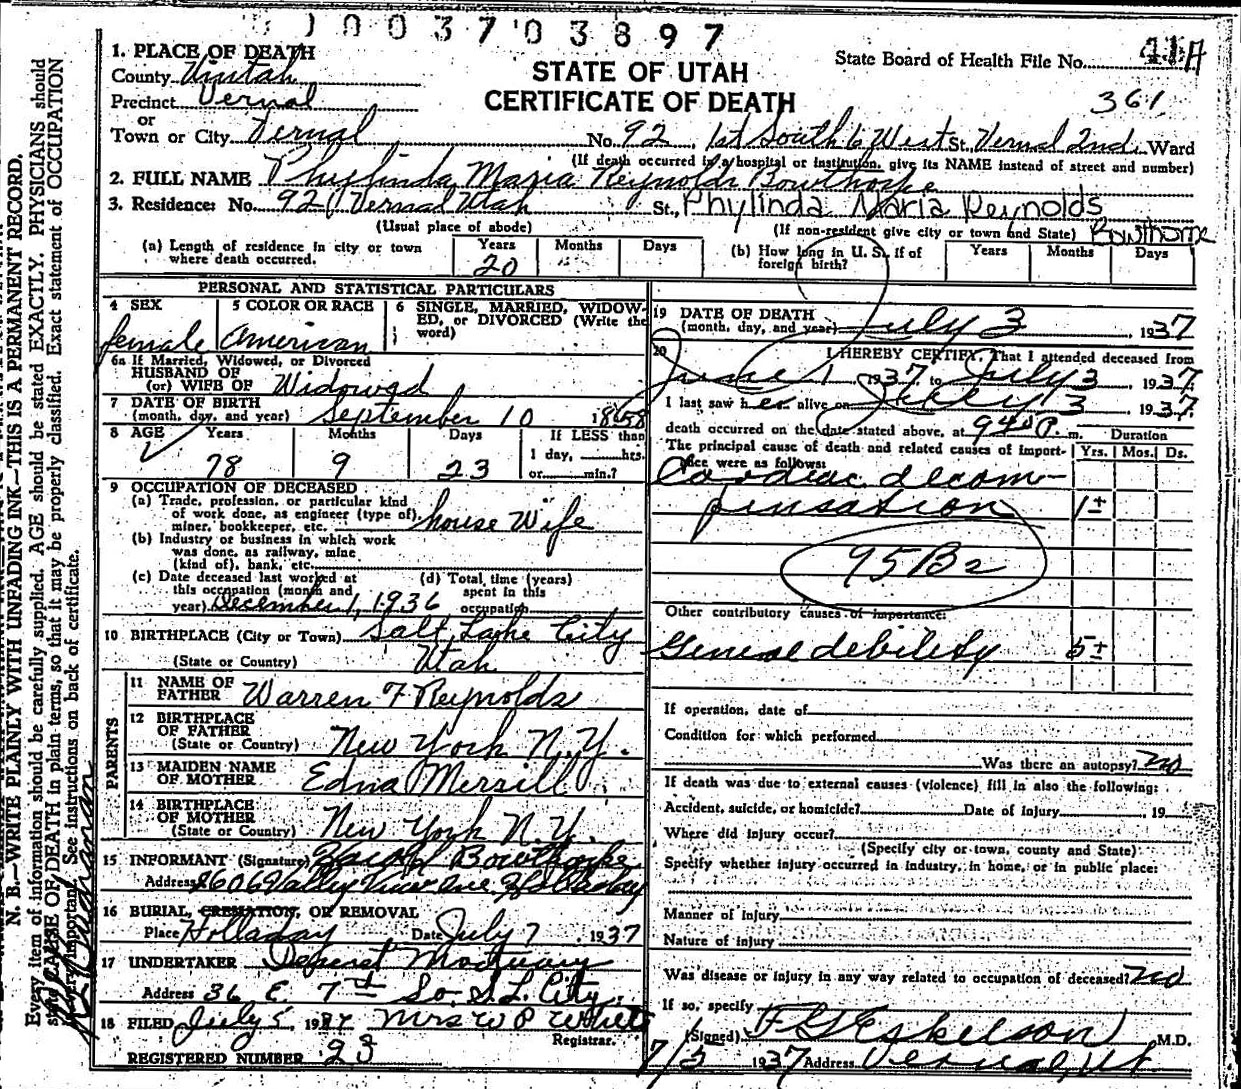 003703897
1. PLACE OF DEATH
County Uintah
Precinct Vernal
or
Town or City Vernal
State Board of Health File No. 41A
STATE OF UTAH
CERTIFICATE OF DEATH
361
No. 92. 1st South 6 West St. Vernal 2nd. Ward
(If death occurred in a hospital or institution, give its NAME instead of street and number)
2. FULL NAME Phylinda Maria Reynolds Bowthorpe
3. Residence: No. 92 Vernal Utah St., Phylinda Maria Reynolds
Bowthorpe
(Usual place of abode)
(If non-resident give city or town and State)
(a) Length of residence in city or town where death occurred. Years 20 Months Days
(b) How long in U. S. if of foreign birth? Years Months Days
PERSONAL AND STATISTICAL PARTICULARS
4 SEX female
5 COLOR OR RACE American
6 SINGLE, MARRIED, WIDOWED, or DIVORCED (Write the word)
6a If Married, Widowed, or Divorced
HUSBAND OF
(or) WIFE OF Widowed
7 DATE OF BIRTH
(month, day, and year) September 10 1858
8 AGE Years Months Days If LESS than
78 9 23 1 day, hrs.
or min.?
9 OCCUPATION OF DECEASED
(a) Trade, profession, or particular kind
of work done, as engineer (type of),
miner, bookkeeper, etc. house Wife
(b) Industry or business in which work
was done, as railway, mine
(kind of), bank, etc.
(c) Date deceased last worked at
this occupation (month and
year) December 1, 1936
(d) Total time (years)
spent in this
occupation
10 BIRTHPLACE (City or Town) Salt Lake City
(State or Country) Utah
PARENTS
11 NAME OF
FATHER Warren F Reynolds
12 BIRTHPLACE
OF FATHER
(State or Country) New York N.Y.
13 MAIDEN NAME
OF MOTHER Edna Merrill
14 BIRTHPLACE
OF MOTHER
(State or Country) New York N.Y.
15 INFORMANT (Signature) Bowthorpe
Address Valley View Ave Holladay
16 BURIAL, CREMATION, OR REMOVAL
Place Holladay Date July 7 1937
17 UNDERTAKER Deseret Mortuary
Address 36 E. 7th So. S.L. City.
18 FILED July 5 1937 Mrs W P White
Registrar.
REGISTERED NUMBER 23
19 DATE OF DEATH
(month, day, and year) July 3, 1937
20 I HEREBY CERTIFY, That I attended deceased from
June 1, 1937, to July 3, 1937
I last saw her alive on July 3, 1937
death occurred on the date stated above, at 940 P. m.
The principal cause of death and related causes of importance were as follows:
Duration
Yrs. Mos. Ds.
Cardiac decom-
pensation 1±
95B2
Other contributory causes of importance:
General debility 5±
If operation, date of
Condition for which performed
Was there an autopsy? no
If death was due to external causes (violence) fill in also the following:
Accident, suicide, or homicide? Date of injury , 19
Where did injury occur?
(Specify city or town, county and State)
Specify whether injury occurred in industry, in home, or in public place:
Manner of injury
Nature of injury
Was disease or injury in any way related to occupation of deceased? no
If so, specify
(Signed) Eskelson M.D.
7/5 1937 Address Vernal, Ut
N. B.—WRITE PLAINLY WITH UNFADING INK—THIS IS A PERMANENT RECORD.
Every item of information should be carefully supplied. AGE should be stated EXACTLY. PHYSICIANS should
state CAUSE OF DEATH in plain terms, so that it may be properly classified. Exact statement of OCCUPATION
is very important. See instructions on back of certificate.